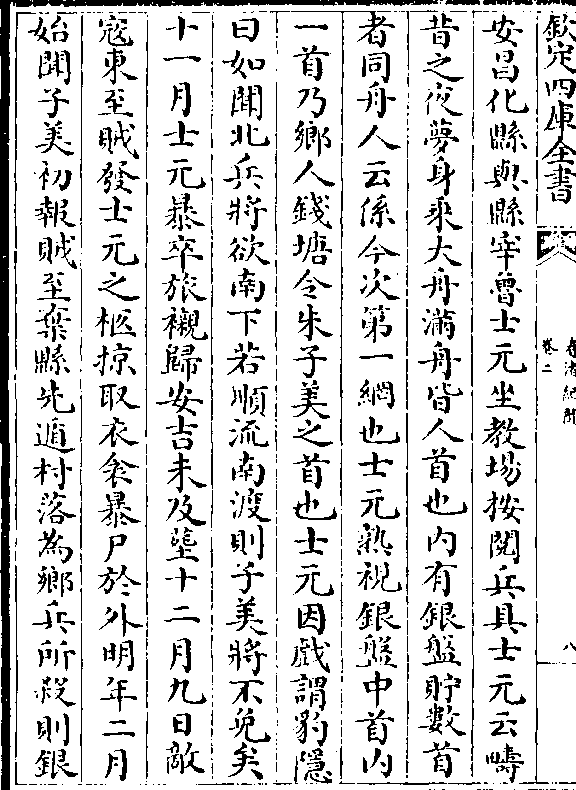 欽定四庫全書
春渚紀聞
卷二
八
安昌化縣與縣宰魯士元坐教場按閱兵具士元云疇
昔之夜夢身乘大舟滿舟皆人首也内有銀盤貯數首
者同舟人云係今次第一綱也士元熟視銀盤中首内
一首乃鄉人錢塘令朱子美之首也士元因戲謂豹隱
曰如聞北兵將欲南下若順流南渡則子美將不免矣
十一月士元暴卒旅襯歸安吉未及塟十二月九日敵
寇東至賊發士元之柩掠取衣衾暴尸於外明年二月
始聞子美初報賊至棄縣先遁村落為鄉兵所殺則銀